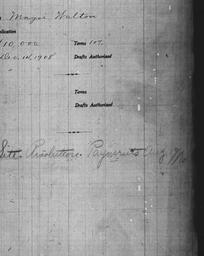 Mayer Walton
lication
$10,000 Terms 10%
Dec 14, 1908 Drafts Authorized
Terms
Drafts Authorized
Site Resolution. Payments Aug